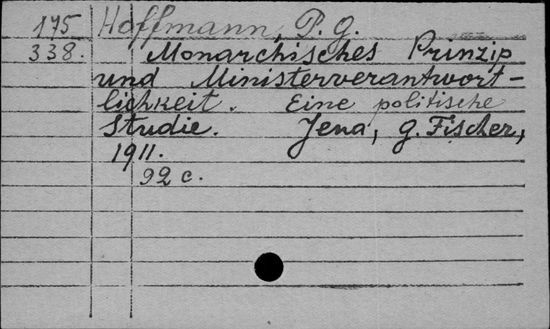 175 Hoffmann, P. G.
338. Monarchisches Prinzip
und Ministerverantwort-
lichkeit. Eine politische
Studie. Jena, G. Fischer,
1911.
92 c.